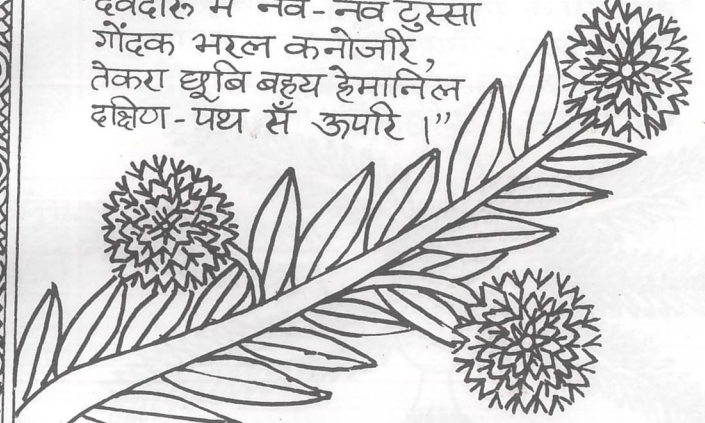 देवदारु मे नव-नव टुस्सा
गोंदक भरल कनोजरि,
तेकरा छूबि बहय हेमानिल
दक्षिण-पथ सँ ऊपरि।"